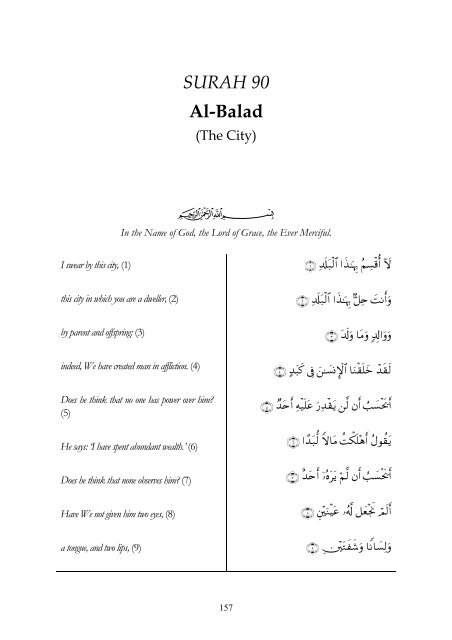 SURAH 90
Al-Balad
(The City)
﷽
In the Name of God, the Lord of Grace, the Ever Merciful.
I swear by this city, (1)
لَآ أُقْسِمُ بِهَـٰذَا ٱلْبَلَدِ ۝١
this city in which you are a dweller, (2)
وَأَنتَ حِلٌّۢ بِهَـٰذَا ٱلْبَلَدِ ۝٢
by parent and offspring: (3)
وَوَالِدٍ وَمَا وَلَدَ ۝٣
indeed, We have created man in affliction. (4)
لَقَدْ خَلَقْنَا ٱلْإِنسَـٰنَ فِى كَبَدٍ ۝٤
Does he think that no one has power over him?
(5)
أَيَحْسَبُ أَن لَّن يَقْدِرَ عَلَيْهِ أَحَدٌ ۝٥
He says: ‘I have spent abundant wealth.’ (6)
يَقُولُ أَهْلَكْتُ مَالًا لُّبَدًا ۝٦
Does he think that none observes him? (7)
أَيَحْسَبُ أَن لَّمْ يَرَهُۥٓ أَحَدٌ ۝٧
Have We not given him two eyes, (8)
أَلَمْ نَجْعَل لَّهُۥ عَيْنَيْنِ ۝٨
a tongue, and two lips, (9)
وَلِسَانًا وَشَفَتَيْنِ ۝٩
157